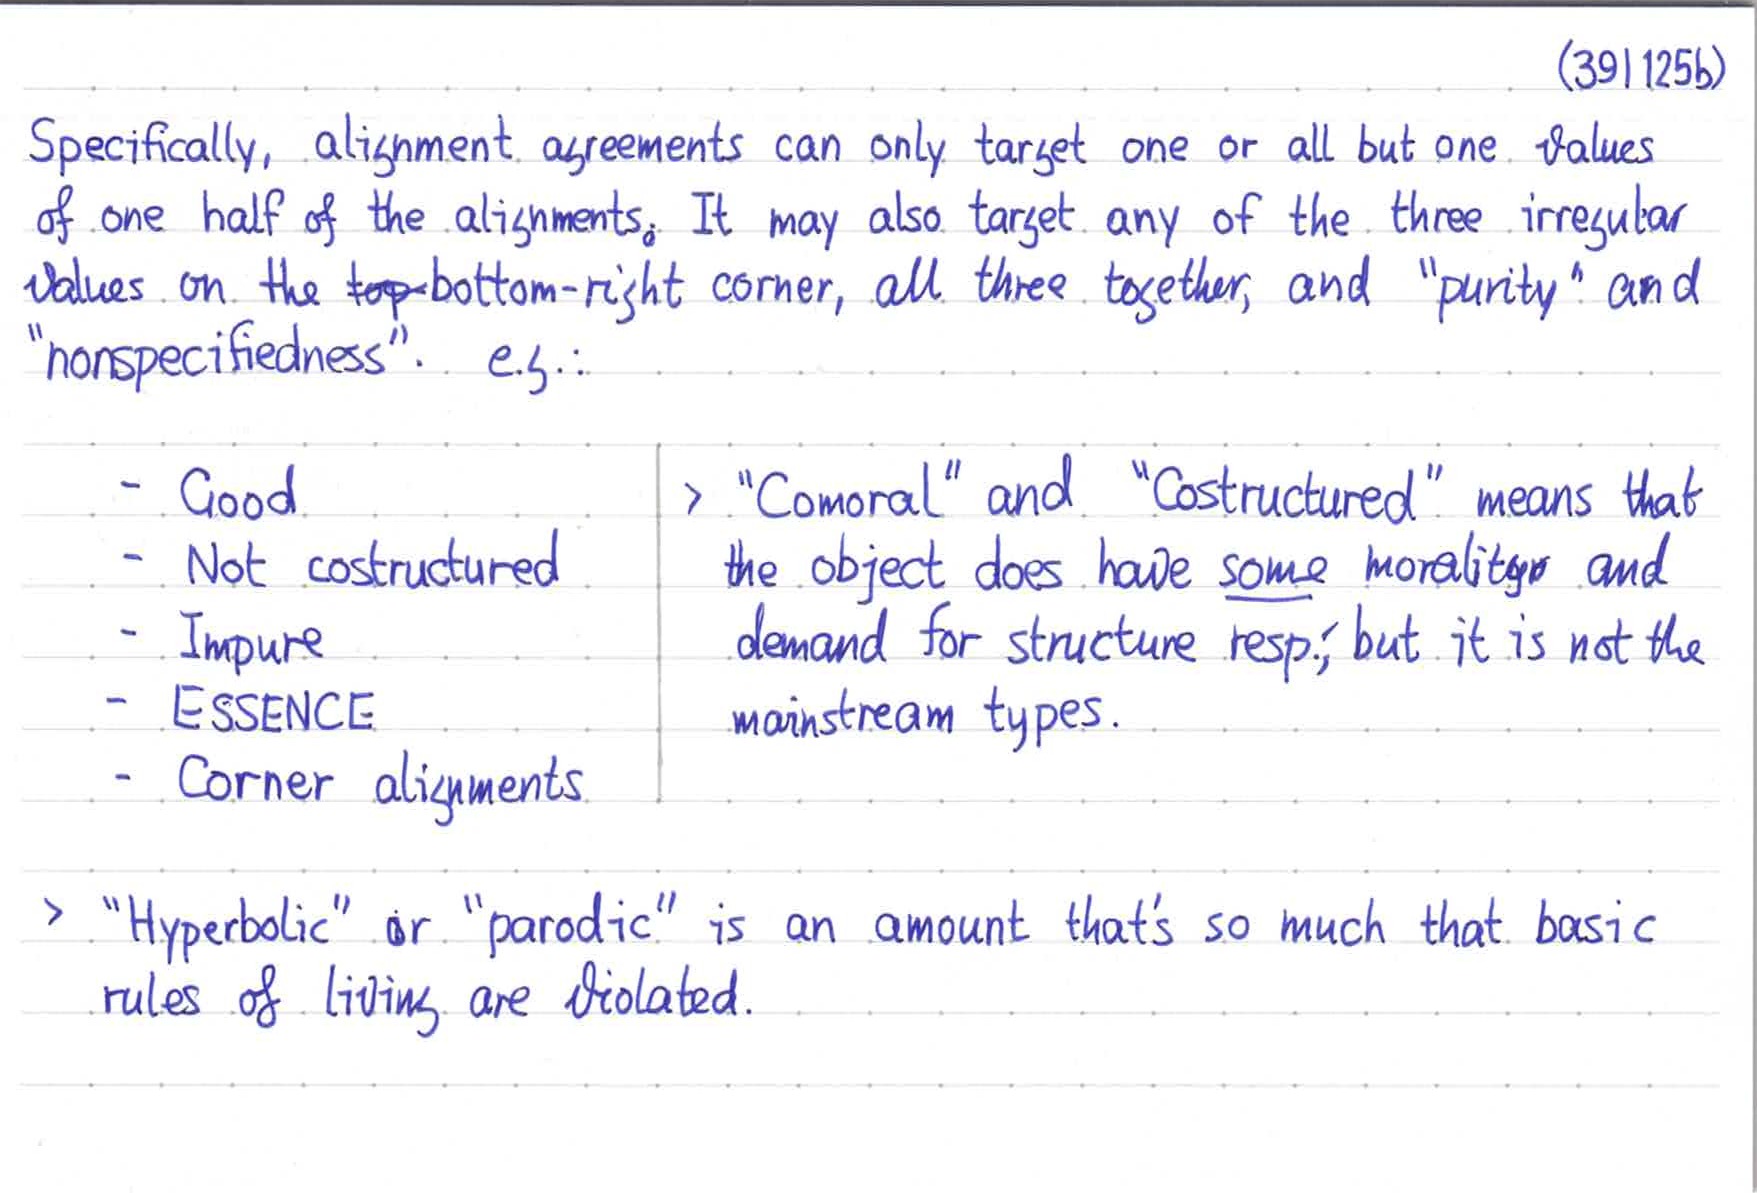 (39|125b)
Specifically, alignment agreements can only target one or all but one values
of one half of the alignments. It may also target any of the three irregular
values on the top bottom-right corner, all three together, and "purity" and
"nonspecifiedness". e.g.:
- Good
- Not costructured
- Impure
- ESSENCE
- Corner alignments
> "Comoral" and "Costructured" means that
the object does have some morality and
demand for structure resp., but it is not the
mainstream types.
> "Hyperbolic" or "parodic" is an amount that's so much that basic
rules of living are violated.